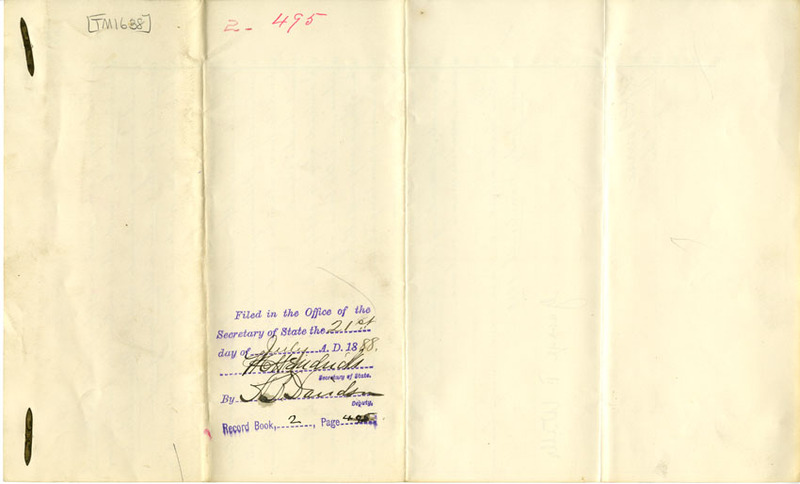 [TM1638]
2- 495
Filed in the Office of the
Secretary of State the 21st
day of July A. D. 1888.
W. C. Hendricks
Secretary of State.
By
Deputy.
Record Book, 2, Page 495